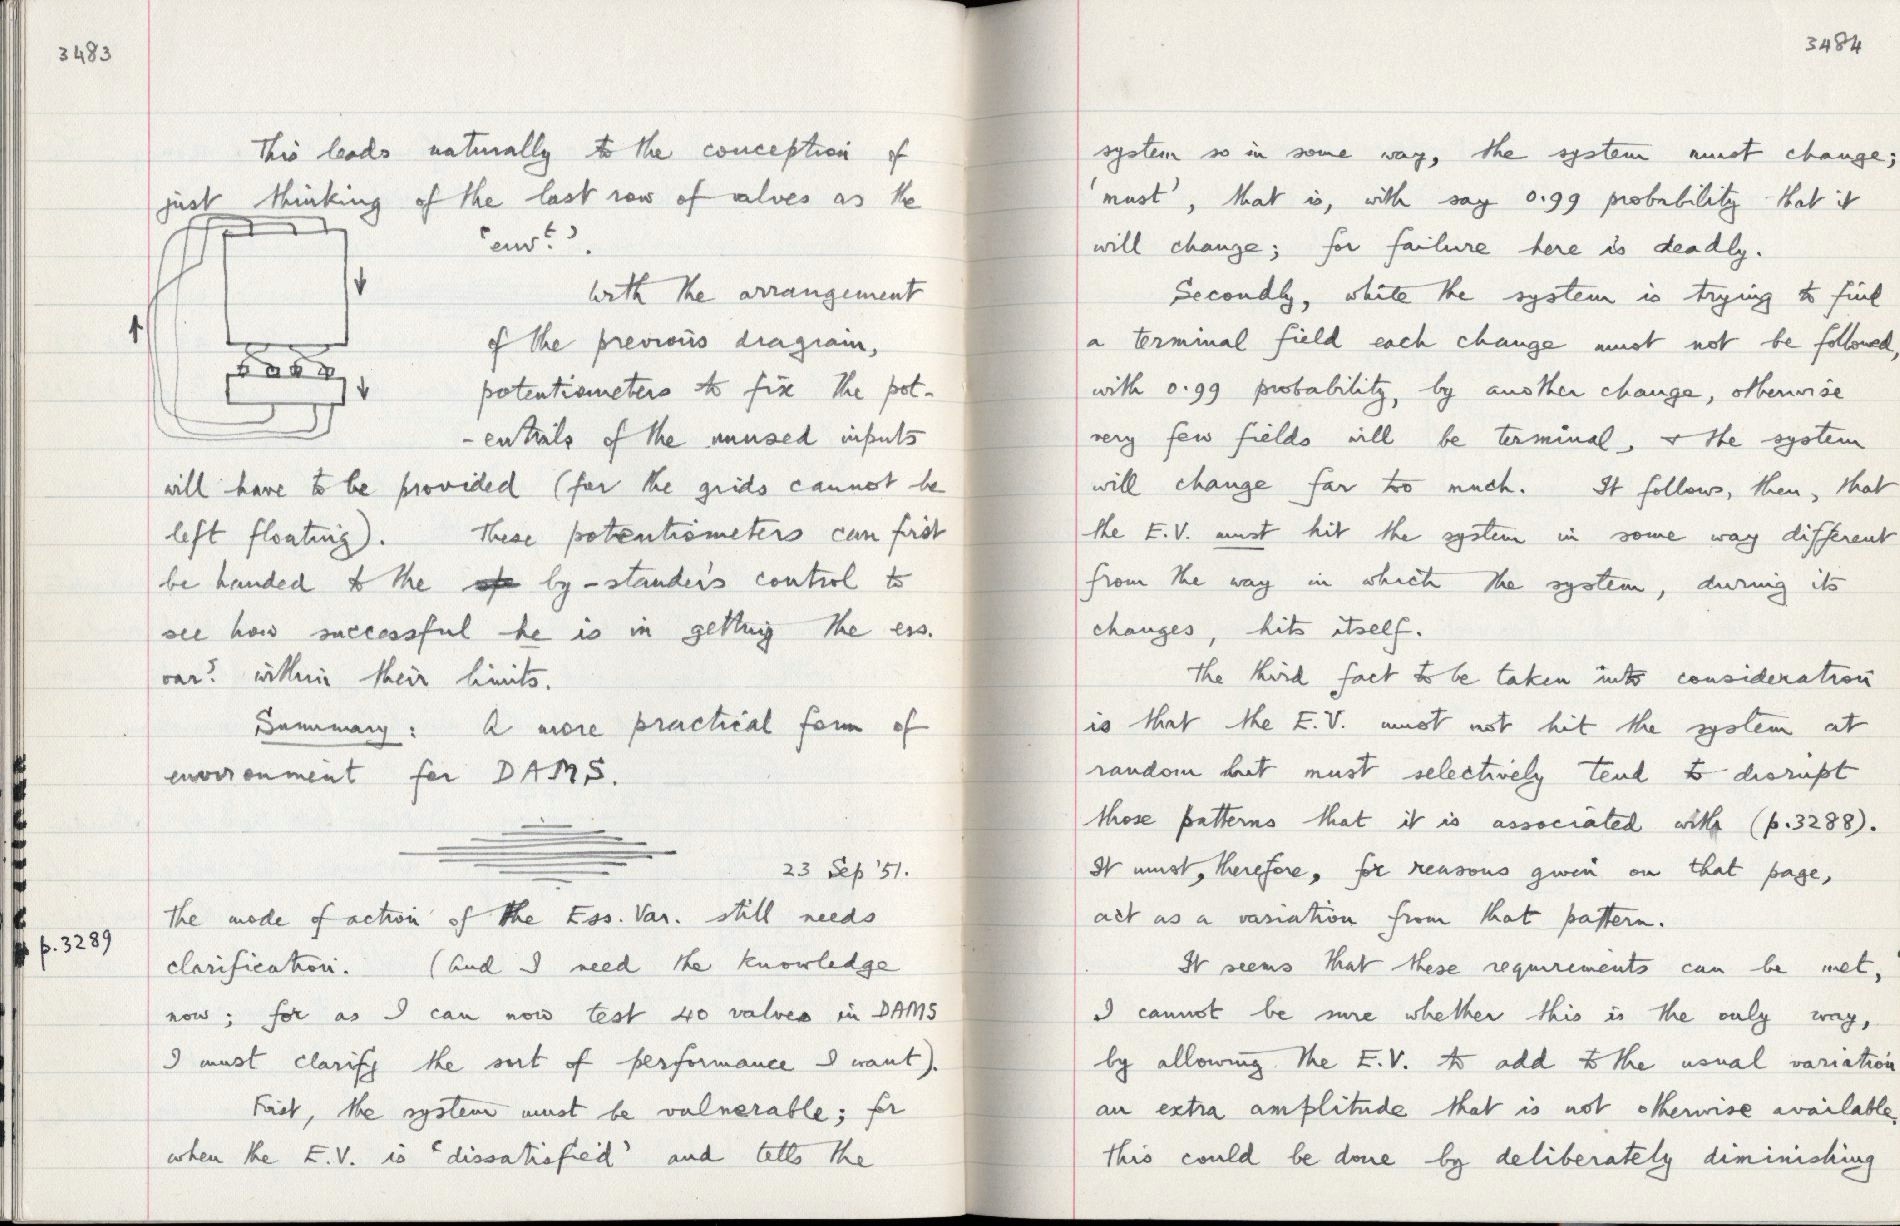 3483
This leads naturally to the conception of
just thinking of the last row of valves as the
'envt.'.
With the arrangement
of the previous diagram,
potentiometers to fix the pot-
-entials of the unused inputs
will have to be provided (for the grids cannot be
left floating). These potentiometers can first
be handed to the by-stander's control to
see how successful he is in getting the ess.
vars. within their limits.
Summary: A more practical form of
environment for DAMS.
23 Sep '51.
The mode of action of the Ess. Var. still needs
p.3289
clarification. (And I need the knowledge
now; for as I can now test 40 valves in DAMS
I must clarify the sort of performance I want).
First, the system must be vulnerable; for
when the E.V. is 'dissatisfied' and tells the
3484
system so in some way, the system must change;
'must', that is, with say 0.99 probability that it
will change; for failure here is deadly.
Secondly, while the system is trying to find
a terminal field each change must not be followed,
with 0.99 probability, by another change, otherwise
very few fields will be terminal, & the system
will change far too much. It follows, then, that
the E.V. must hit the system in some way different
from the way in which the system, during its
changes, hits itself.
The third fact to be taken into consideration
is that the E.V. must not hit the system at
random but must selectively tend to disrupt
those patterns that it is associated with (p.3288).
It must, therefore, for reasons given on that page,
act as a variation from that pattern.
It seems that these requirements can be met,
I cannot be sure whether this is the only way,
by allowing the E.V. to add to the usual variation
an extra amplitude that is not otherwise available.
This could be done by deliberately diminishing